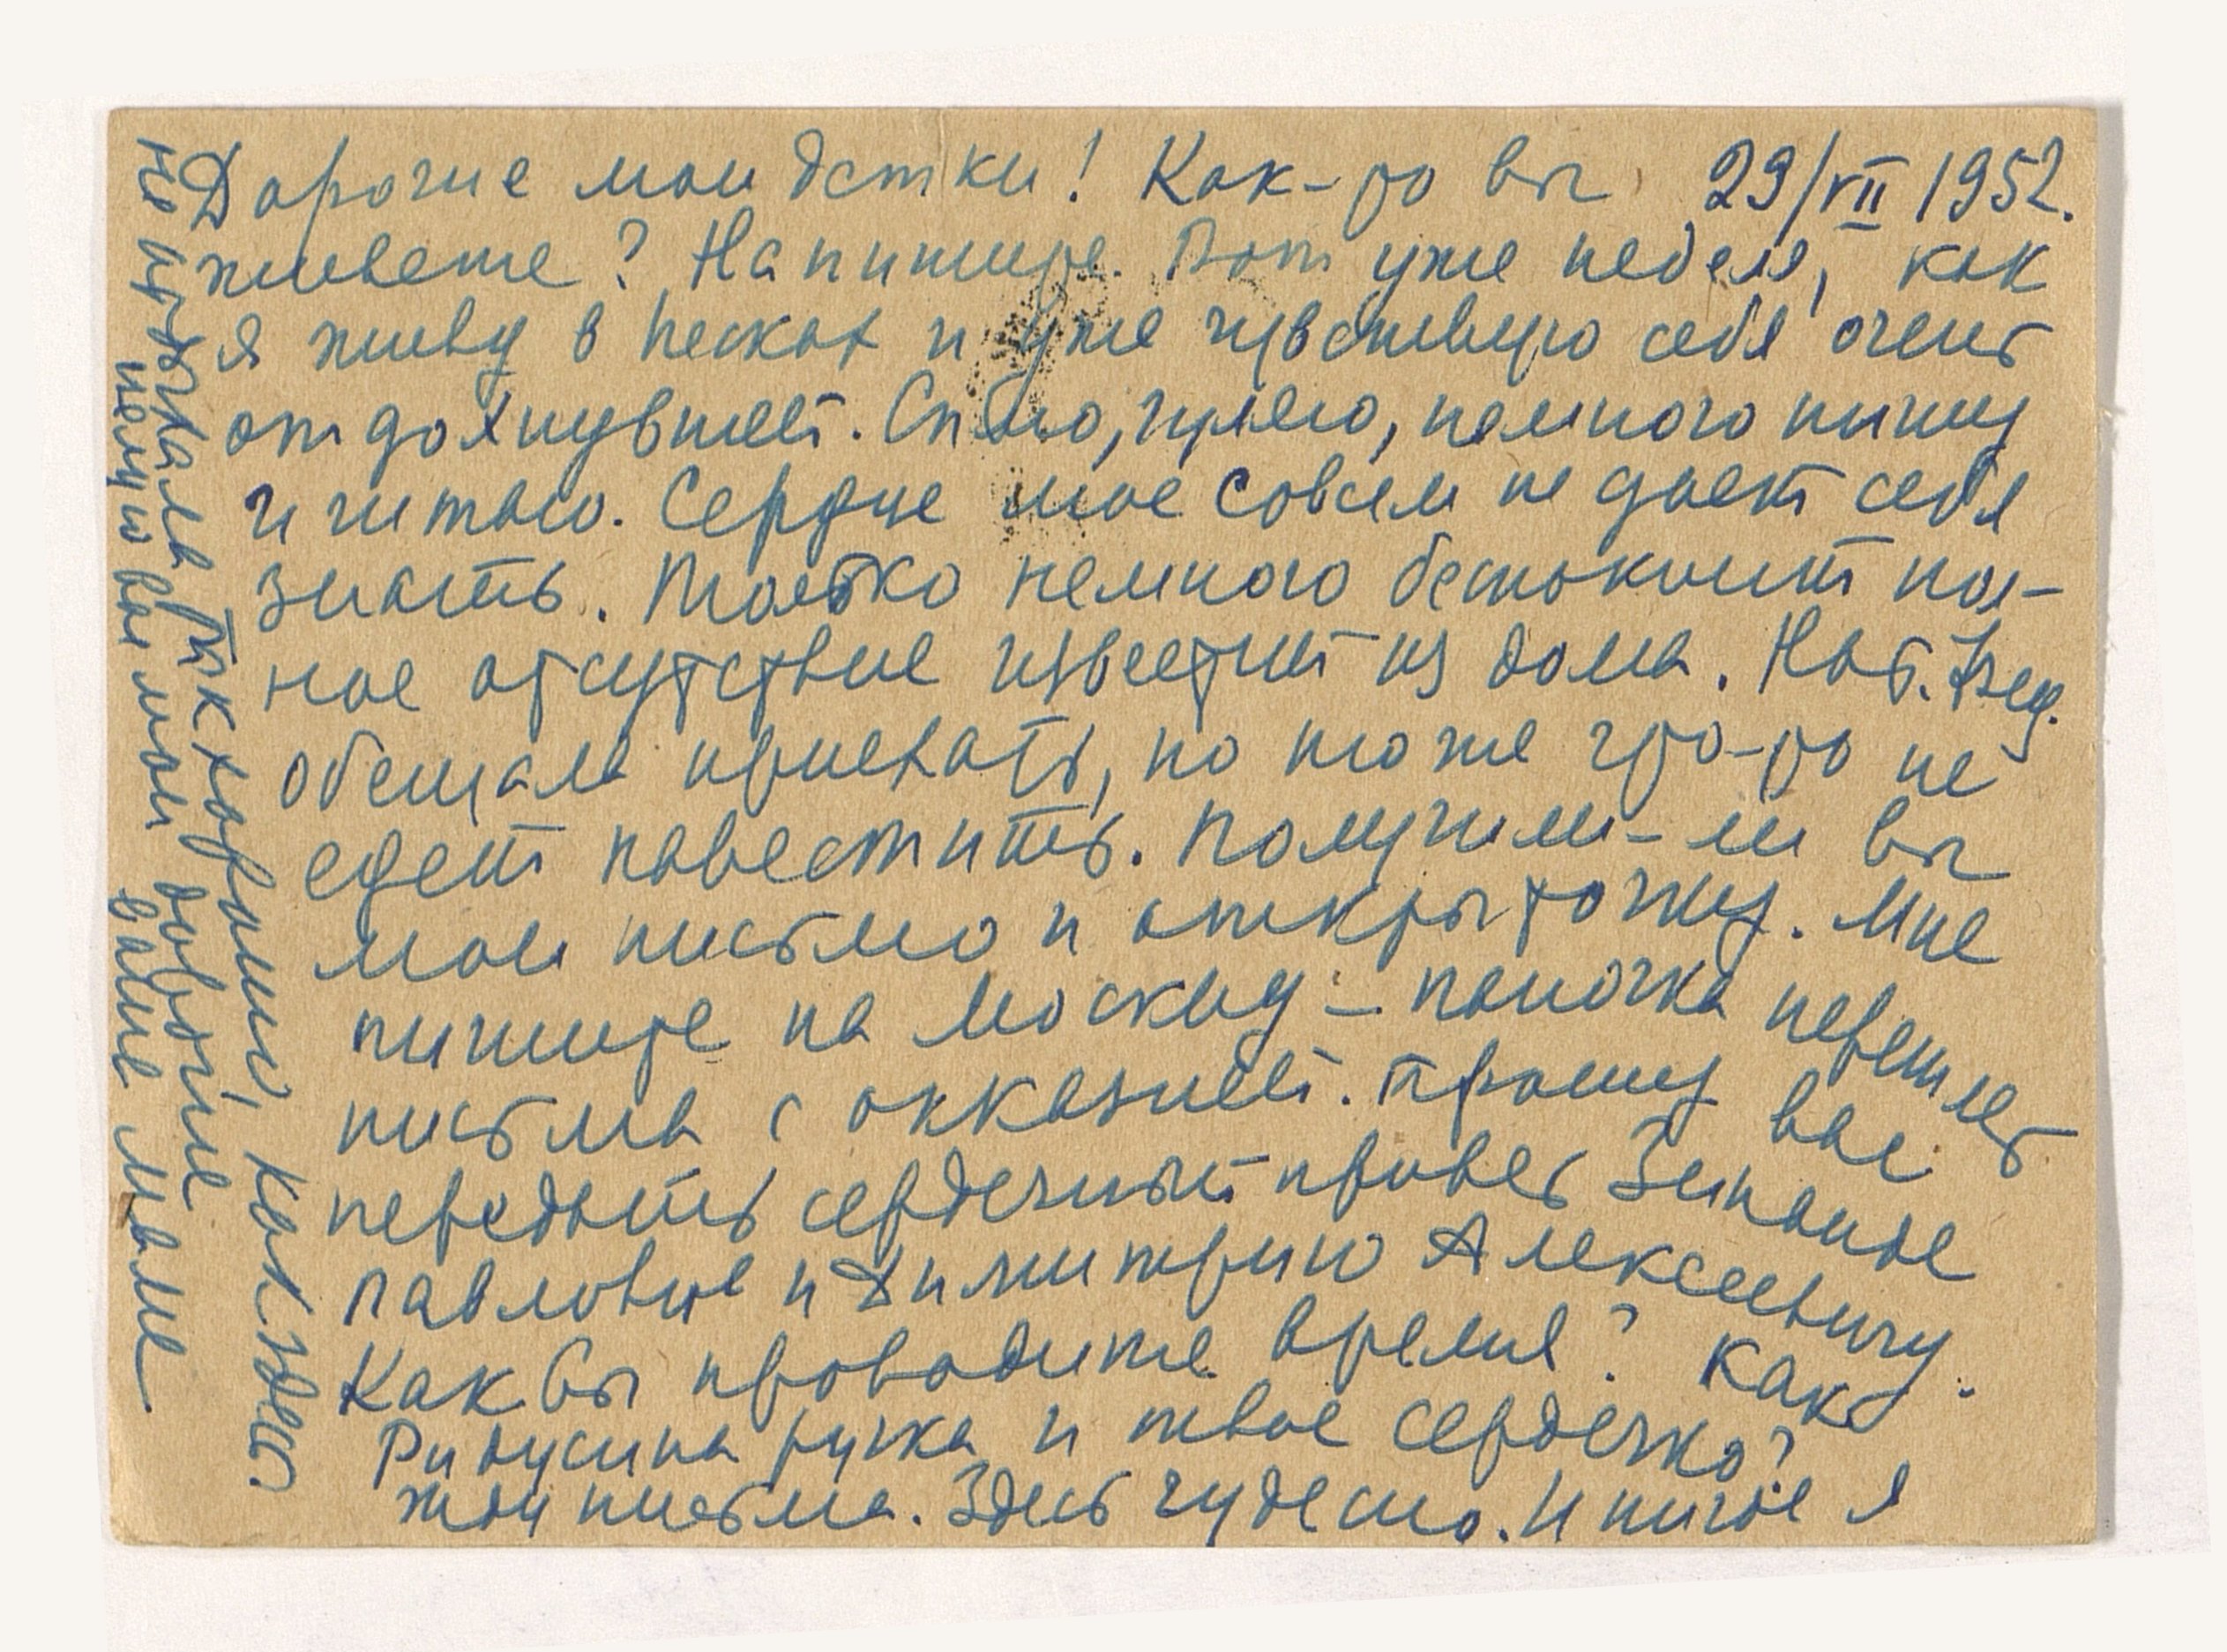 Дорогие мои детки! Как-то вы 29/VII 1952.
живете? Напишите. Вот уже неделя, как
я живу в Песках и уже чувствую себя очень
отдохнувшей. Сплю, гуляю, немного пишу
и читаю. Сердце мое совсем не дает себя
знать. Только немного беспокоит пол-
ное отсутствие известий из дома. Нат. Вед.
обещала приехать, но тоже что-то не
едет навестить. Получили-ли вы
мои письмо и открыточку. Мне
пишите на Москву – папочка перешлет
письма с окказией. Прошу вас
передать сердечный привет Зинаиде
Павловне и Димитрию Алексеевичу.
Как вы проводите время? Как
Ридусина ручка и твое сердечко?
Жду письма. Здесь чудесно. И нигде я
не отдыхала так хорошо, как здесь.
Целую вас мои дорогие
ваше маме